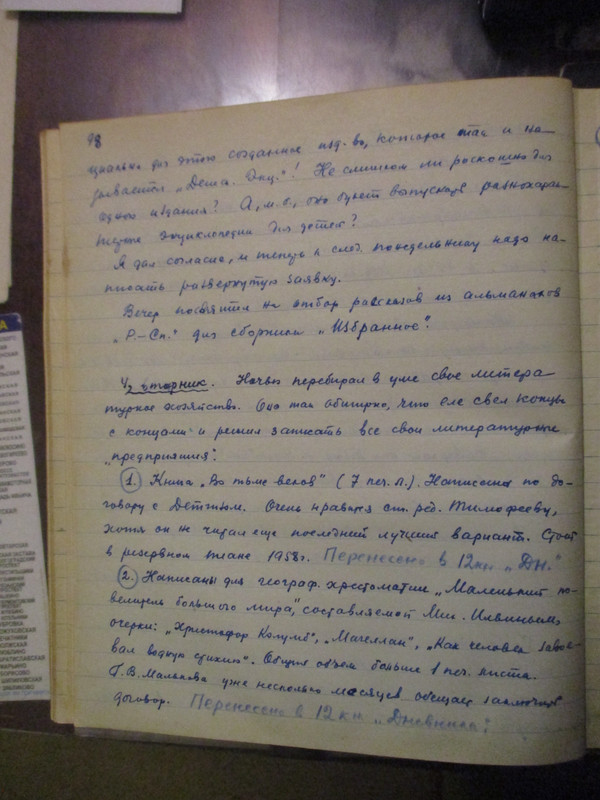 98
циально для этого созданное изд-во, которое так и на-
зывается „Детск. Энц."! Не слишком ли роскошно для
одного издания? А, м.б., оно будет выпускать разнохарак-
терные энциклопедии для детей?
Я дал согласие, и теперь к след. понедельнику надо на-
писать развернутую заявку.
Вечер посвятил на отбор рассказов из альманахов
„Р.-Сп." для сборника „Избранное".
4/2 вторник. Ночью перебирал в уме свое литера-
турное хозяйство. Оно так обширно, что еле свел концы
с концами и решил записать все свои литературные
„предприятия":
1. Книга „Во тьме веков" (7 печ. л.). Написана по до-
говору с Детгизом. Очень нравится ст. ред. Тимофееву,
хотя он не читал еще последний лучший вариант. Стоит
в резервном плане 1958г. Перенесено в 12 кн „Дн."
2. Написаны для географ. хрестоматии „Маленький по-
велитель большого мира", составляемой Мих. Ильиным,
очерки: „Христофор Колумб", „Магеллан", „Как человек завое-
вал водную стихию". Общий объем больше 1 печ. листа.
Г.В. Малькова уже несколько месяцев обещает заключить
договор. Перенесено в 12 кн „Дневника"